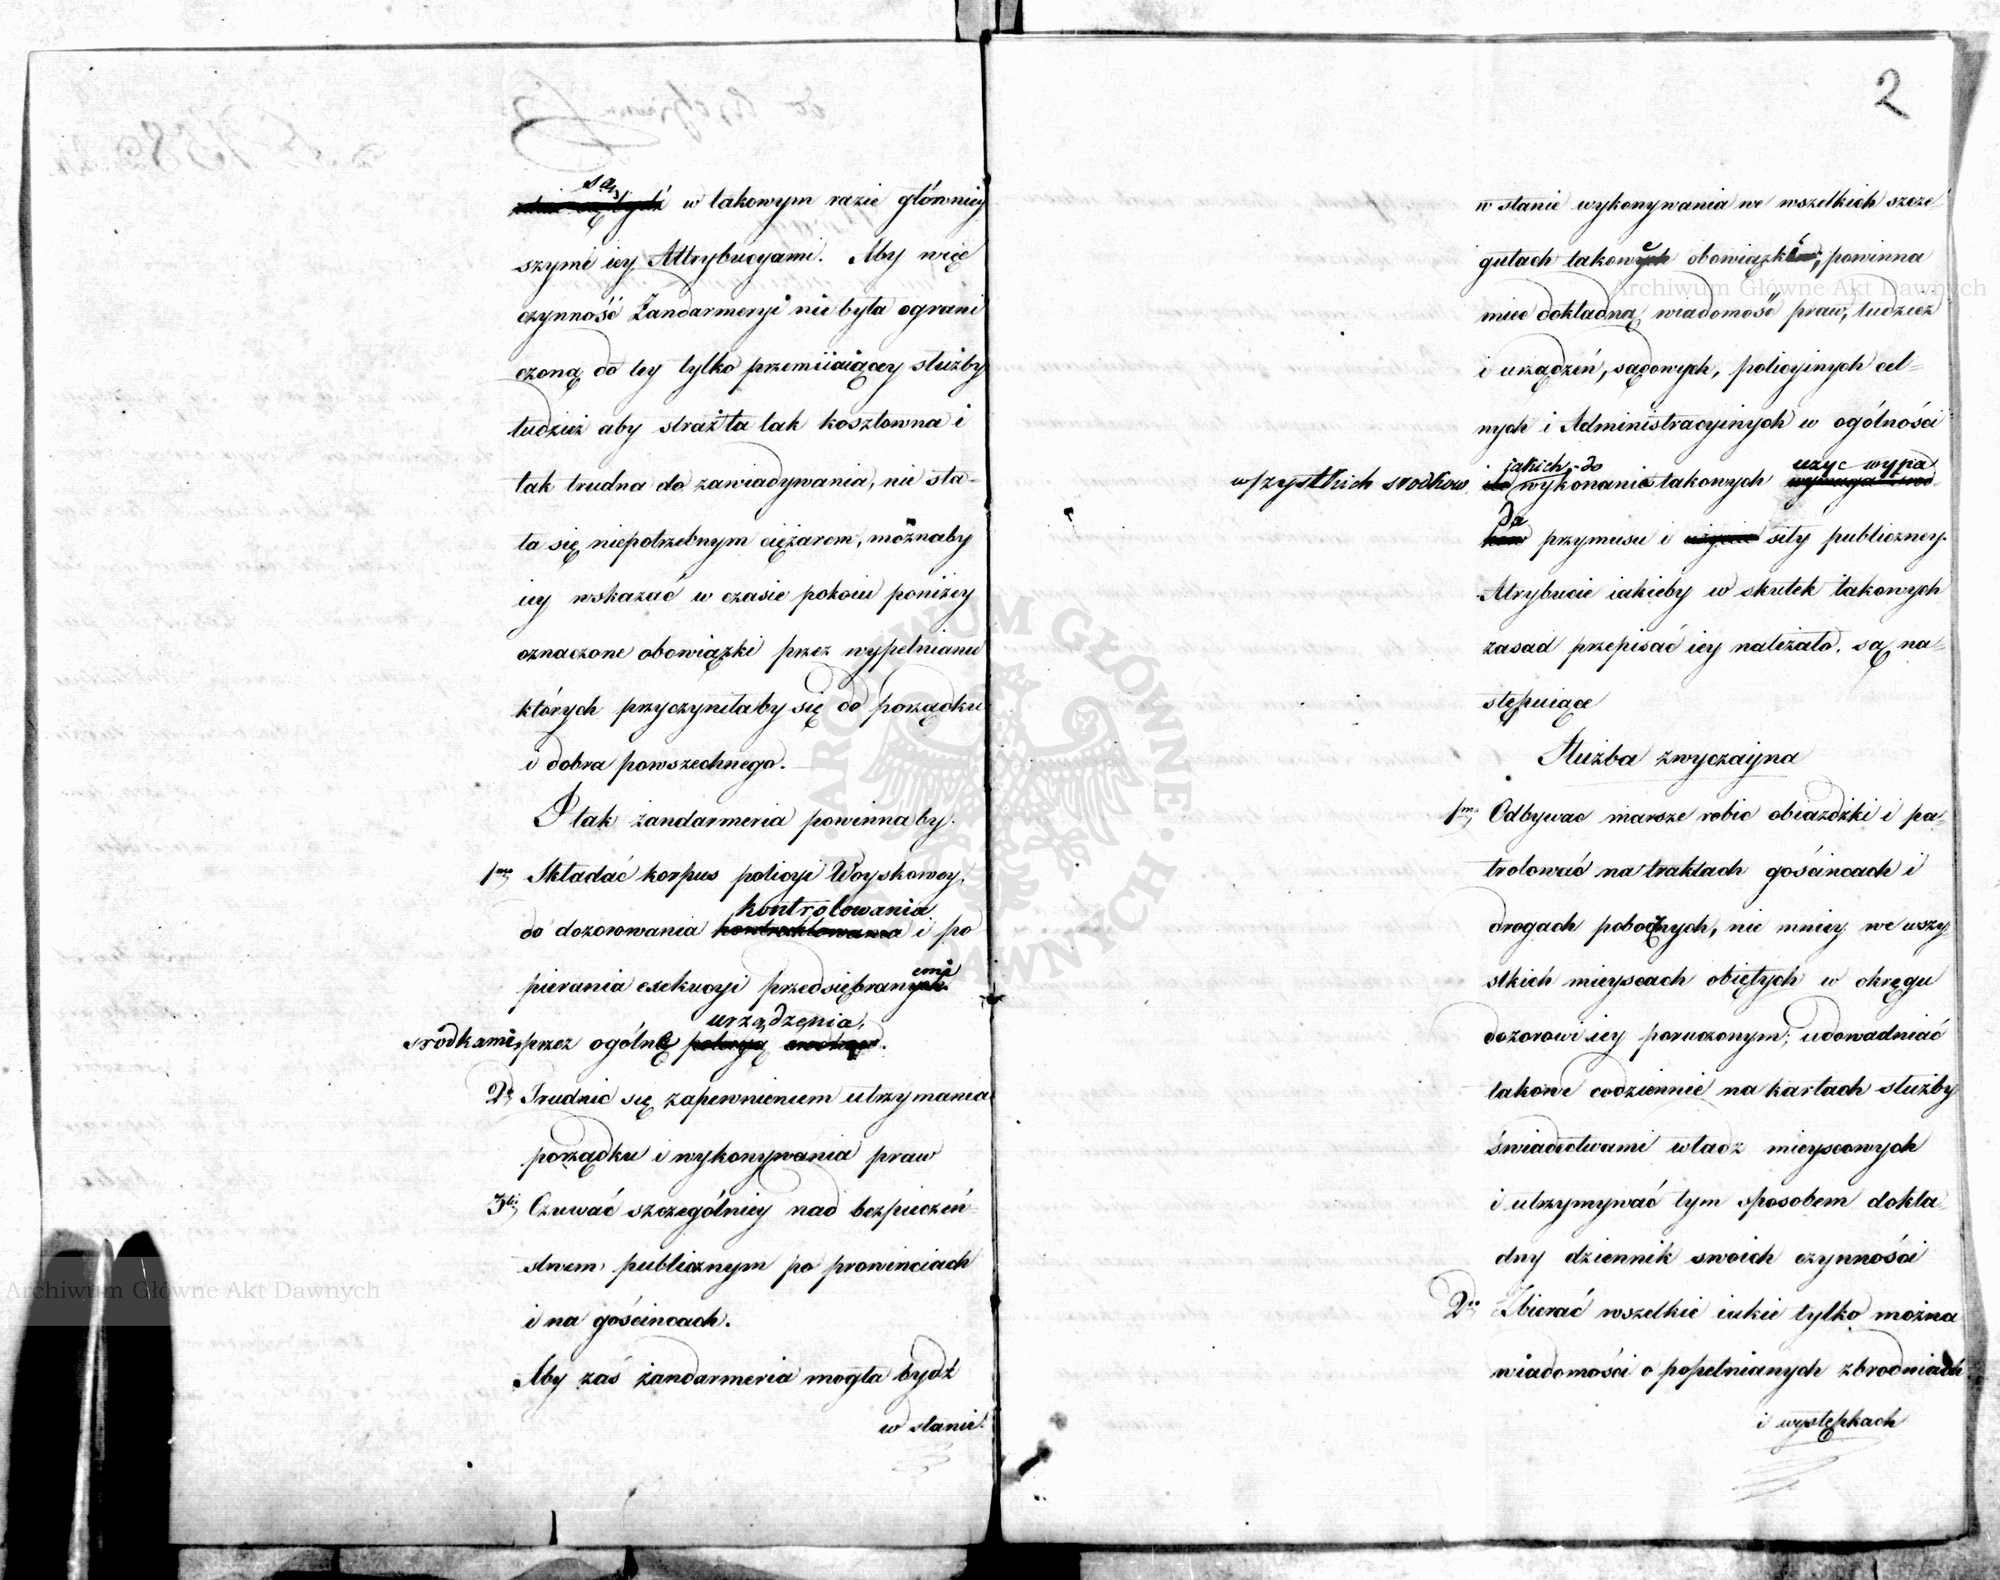 są w takowym razie główniey
szymi iey Attrybucyami. Aby więc
czynność Żandarmeryi nie była ograni
czoną do tey tylko przemiiaiącey służby
tudzież aby straż ta tak kosztowna i
tak trudna do zawiadywania, nie sta-
ła się niepotrzebnym ciężarem, możnaby
iey wskazać w czasie pokoiu poniżey
oznaczone obowiązki przez wypełnianie
których przyczyniłaby się do porządku
i dobra powszechnego.
I tak żandarmeria powinna by.
1mo Składać korpus policyi Woyskowey,
kontrolowania
do dozorowania kontrollowania i po
pierania exekucyi przedsiębranych
emi
urządzenia,
srodkami, przez ogólne policyą
2o Trudnic się zapewnieniem utrzymania
porządku i wykonywania praw
3tio Czuwać szczególniey nad bezpieczeń-
stwem publicznym po prowinciach
i na gościncach.
Aby zaś żandarmeria mogła bydź
w stanie
2
w stanie wykonywania we wszelkich szcze-
gułach takowych obowiązków, powinna
miec dokładną wiadomość praw, tudzież
i urządzeń, sądowych, policyinych cel-
nych i Administracyinych w ogólności
jakich do użyc wypa
wszystkich srodkow, do wykonanie takowych wymaga srod-
da
kow przymusu i użycie siły publiczney.
Atrybucie iakieby w skutek takowych
zasad przepisać iey należało, są na-
stępuiące
Służba zwyczayna
1mo Odbywac marsze robic obiazdżki i pa-
trolować na traktach gościncach i
drogach pobocznych, nie mniey we wszy
stkich mieyscach obiętych w okręgu
dozorowi iey poruczonym; udowadniać
takowe codziennie na kartach służby
świadectwami władz mieyscowych
i utrzymywać tym sposobem dokła-
dny dziennik swoich czynności
2o Zbierać wszelkie iakie tylko można
wiadomości o popełnianych zbrodniach
i występkach
Archiwum Główne Akt Dawnych
Archiwum Główne Akt Dawnych
ARCHIWUM GŁÓWNE AKT DAWNYCH